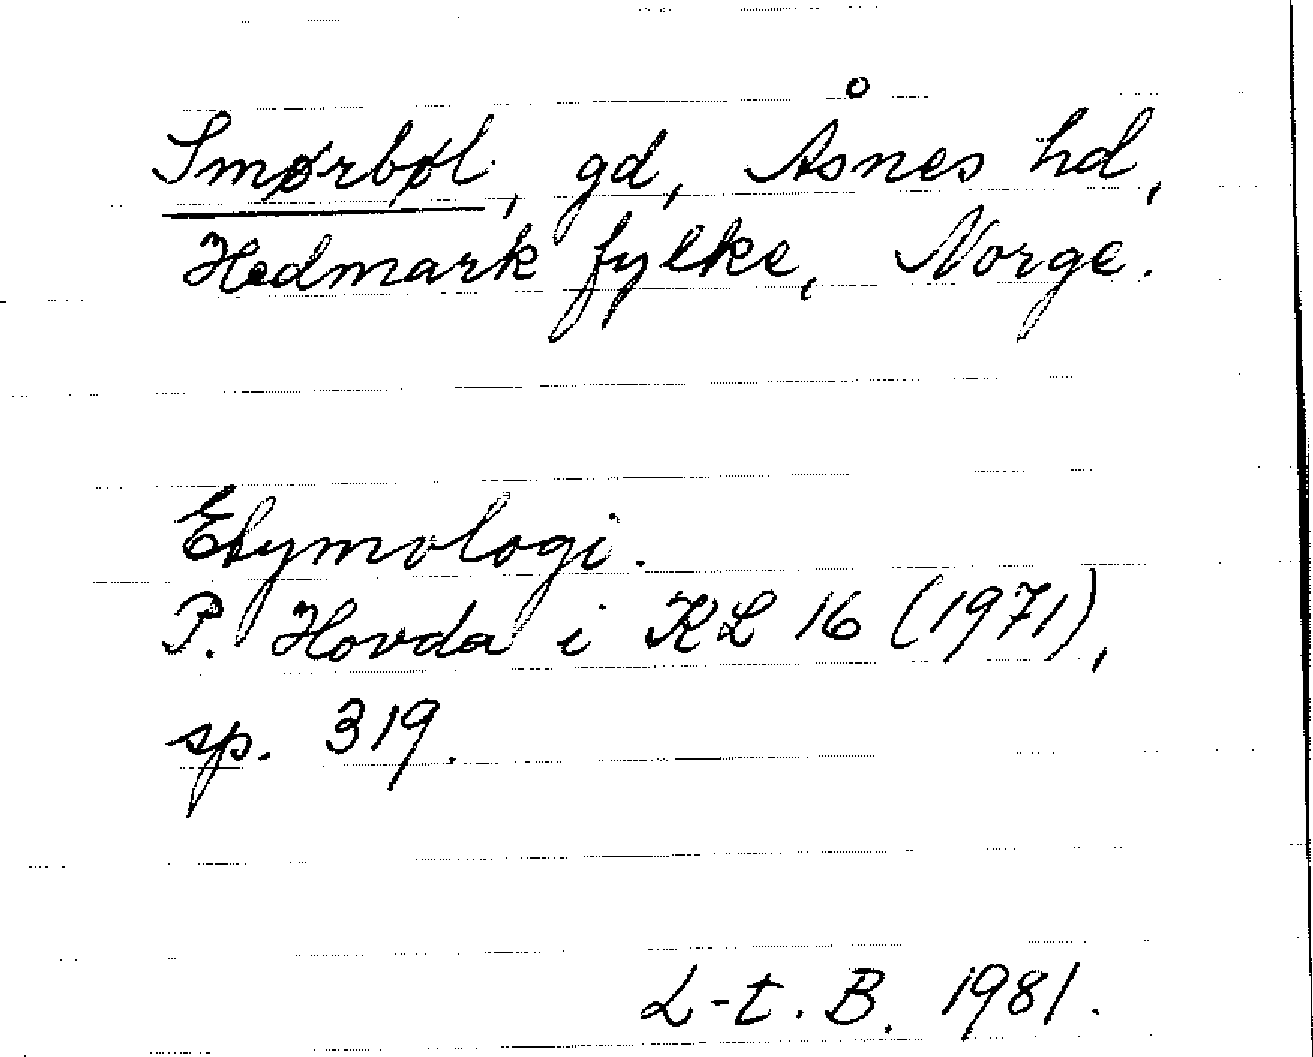 Smørbøl, gd, Åsnes hd,
Hedmark fylke, Norge.
Etymologi.
P. Hovda i KL 16 (1971),
sp. 319.
L-t. B. 1981.